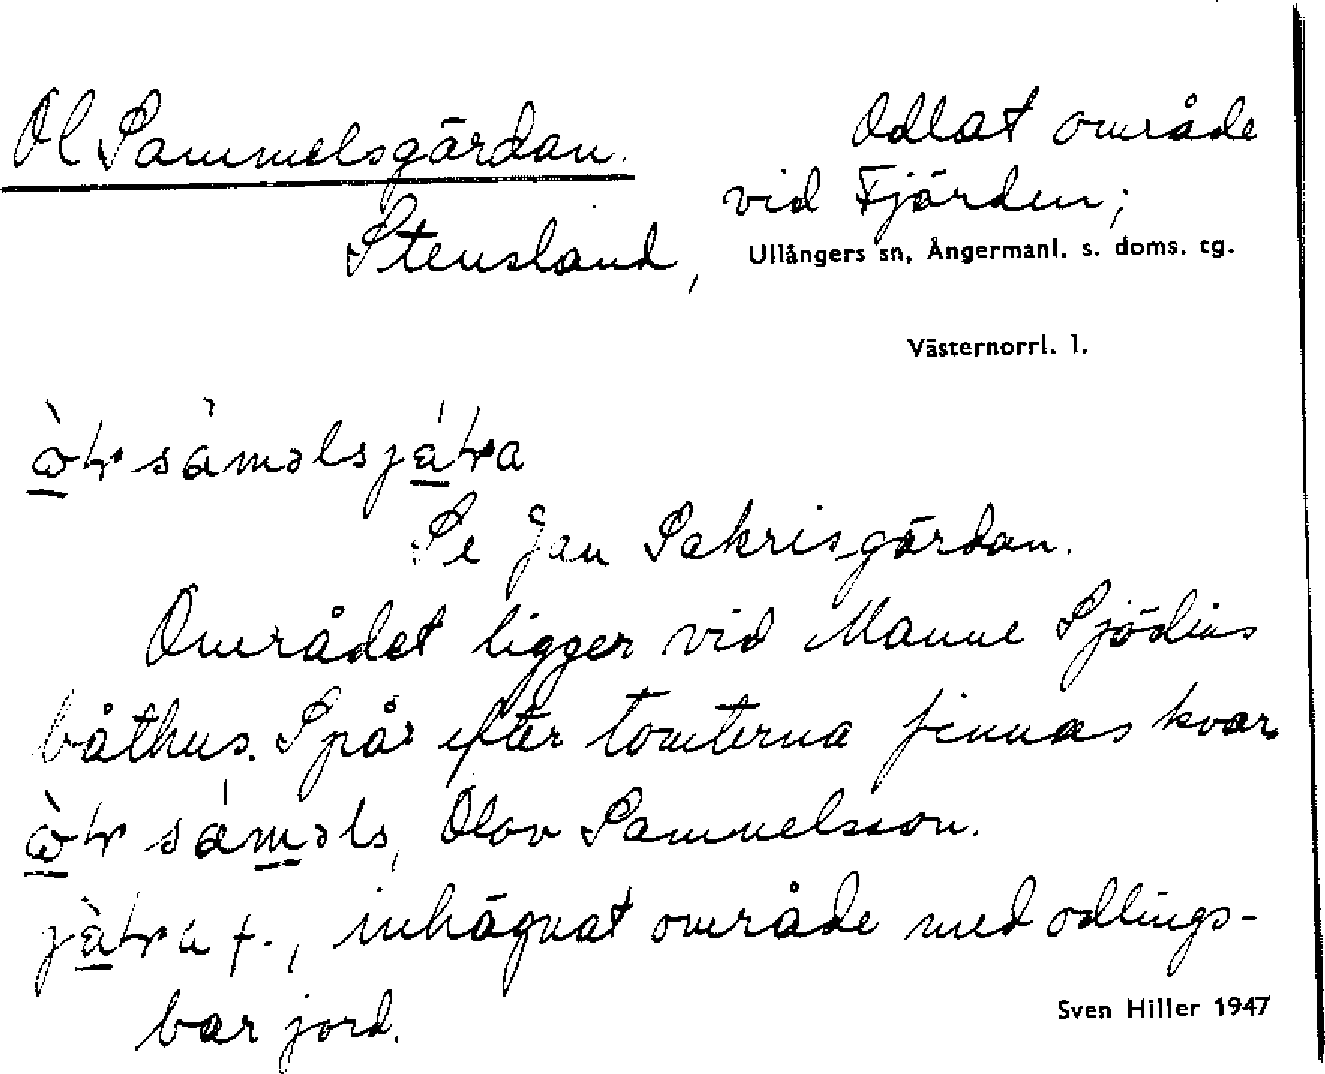 Ol Sammelsgärdan.
Odlat område
vid Fjärden;
Stensland,
Ullångers sn, Ångermanl. s. doms. tg.
Västernorrl. l.
Se Jan Sakrisgärdan.
Området ligger vid Manne Sjödins
båthus. Spår efter tomterna finnas kvar.
Olov Sammelsson.
f., inhägnat område med odlings-
bar jord.
Sven Hiller 1947